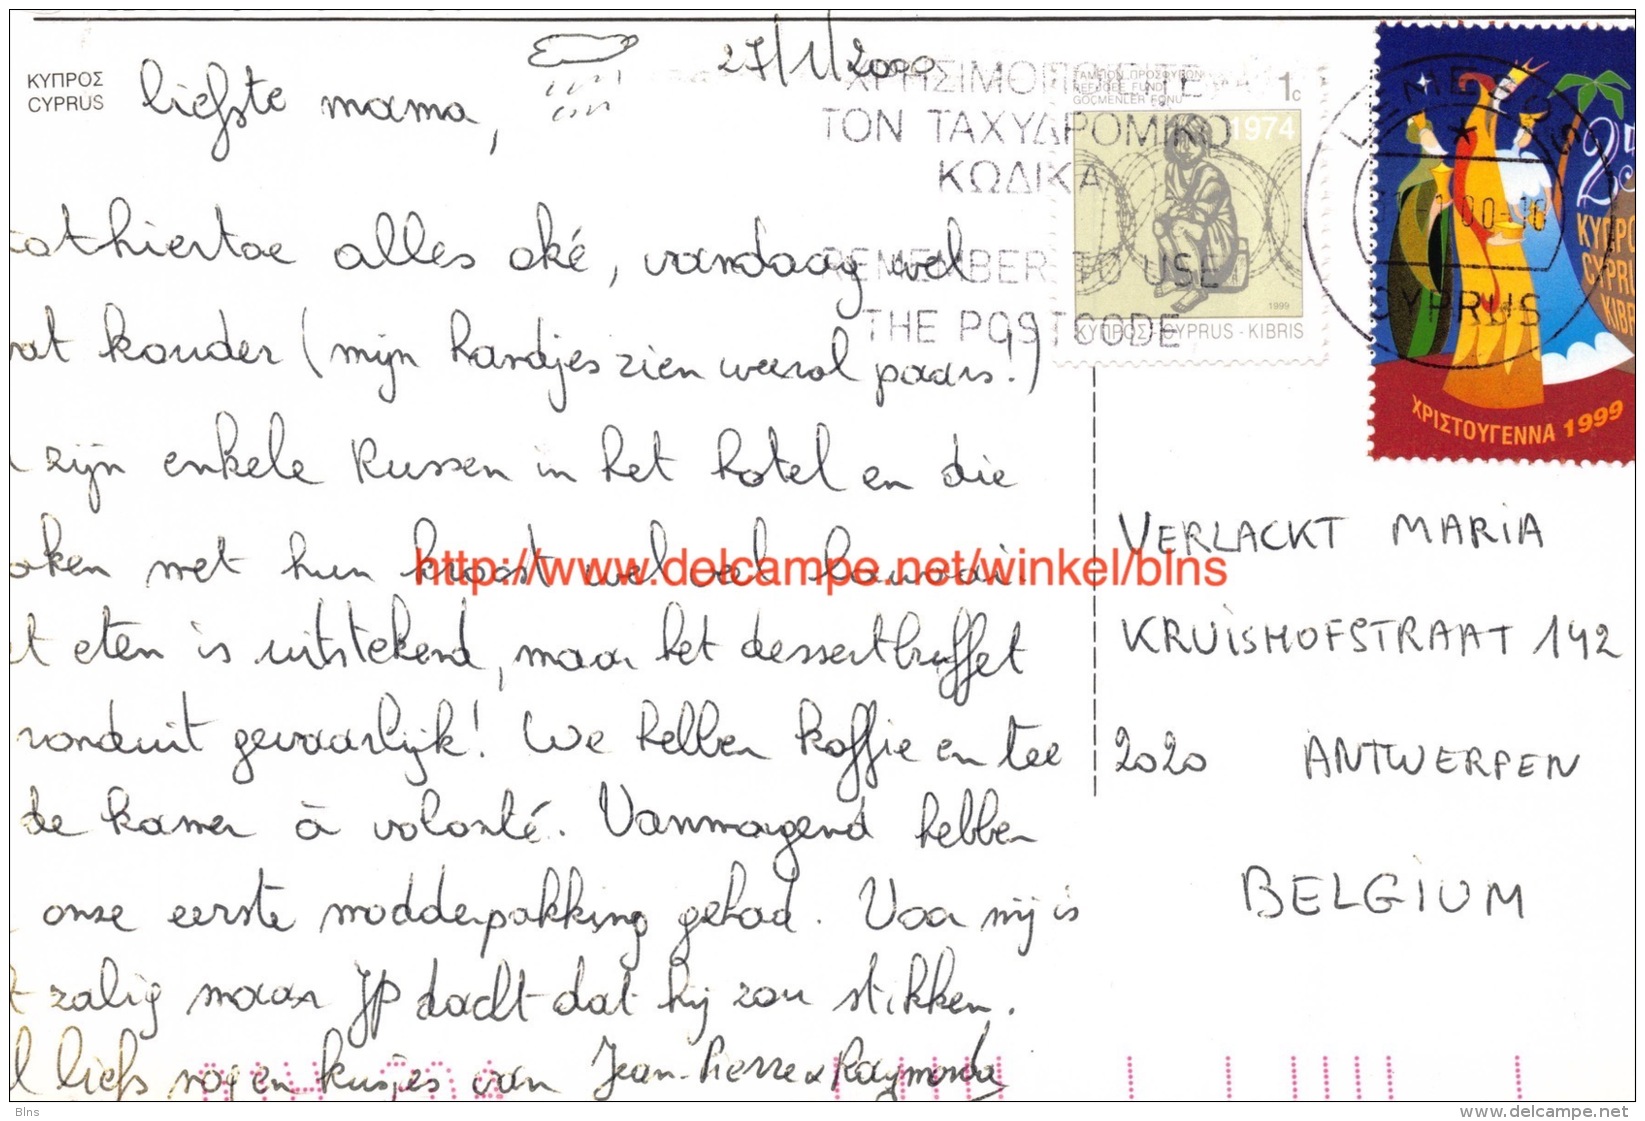 27/1/2000
ΚΥΠΡΟΣ
CYPRUS
liefste mama,
tothiertoe alles oké, vandaag wel
wat kouder (mijn handjes zien weeral paars!)
zijn enkele Russen in het hotel en die
oken met hun kroost wel veel lawaai.
et eten is uitstekend, maar het dessertbuffet
ronduit gevaarlijk! We hebben koffie en tee
de kamer à volonté. Vanmorgend hebben
onze eerste modderpakking gehad. Voor mij is
t zalig maar JP dacht dat hij zou stikken.
l liefs nog en kusjes van Jean-Pierre & Raymonda
ΧΡΗΣΙΜΟΠΟΙΕΙΤΕ
ΤΟΝ ΤΑΧΥΔΡΟΜΙΚΟ
ΚΩΔΙΚΑ
REMEMBER TO USE
THE POSTCODE
ΤΑΜΕΙΟΝ ΠΡΟΣΦΥΓΩΝ
REFUGEE FUND
GÖÇMENLER FONU
1c
1974
1999
ΚΥΠΡΟΣ - CYPRUS - KIBRIS
LEMESOS
00-16
CYPRUS
25
ΚΥΠΡΟ
CYPRU
KIBR
ΧΡΙΣΤΟΥΓΕΝΝΑ 1999
VERLACKT MARIA
KRUISHOFSTRAAT 142
2020 ANTWERPEN
BELGIUM
http://www.delcampe.net/winkel/blns
Blns
www.delcampe.net